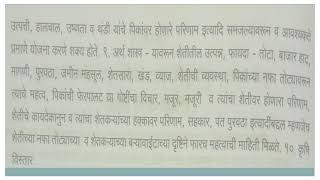 उत्पत्ती, हालचाल, उष्णता व थंडी यांचे पिकांवर होणारे परिणाम इत्यादि समजल्यावरून व आवश्यकते
प्रमाणे योजना करणे शक्य होते. ९. अर्थ शास्त्र - यावरून शेतीतील उत्पन्न, फायदा - तोटा, बाजार हाट,
मागणी, पुरवठा, जमीन महसूल, शेतसारा, खंड, व्याज, शेतीची व्यवस्था, पिकांच्या नफा तोट्यावरून
त्यांचे महत्व, पिकांची फेरपालट ह्या गोष्टींचा विचार, मजूर, मजूरी व त्यांचा शेतीवर होणारा परिणाम,
शेतीचे कायदेकानुन व त्यांचा शेतकऱ्यांच्या हक्कावर परिणाम, सहकार, पत पुरवठा इत्यादींबद्दल म्हणजेच
शेतीच्या नफा तोट्याच्या व शेतकऱ्याच्या बऱ्यावाईटाच्या दृष्टिने फारच महत्वाची माहिती मिळते. १० कृषि
विस्तार